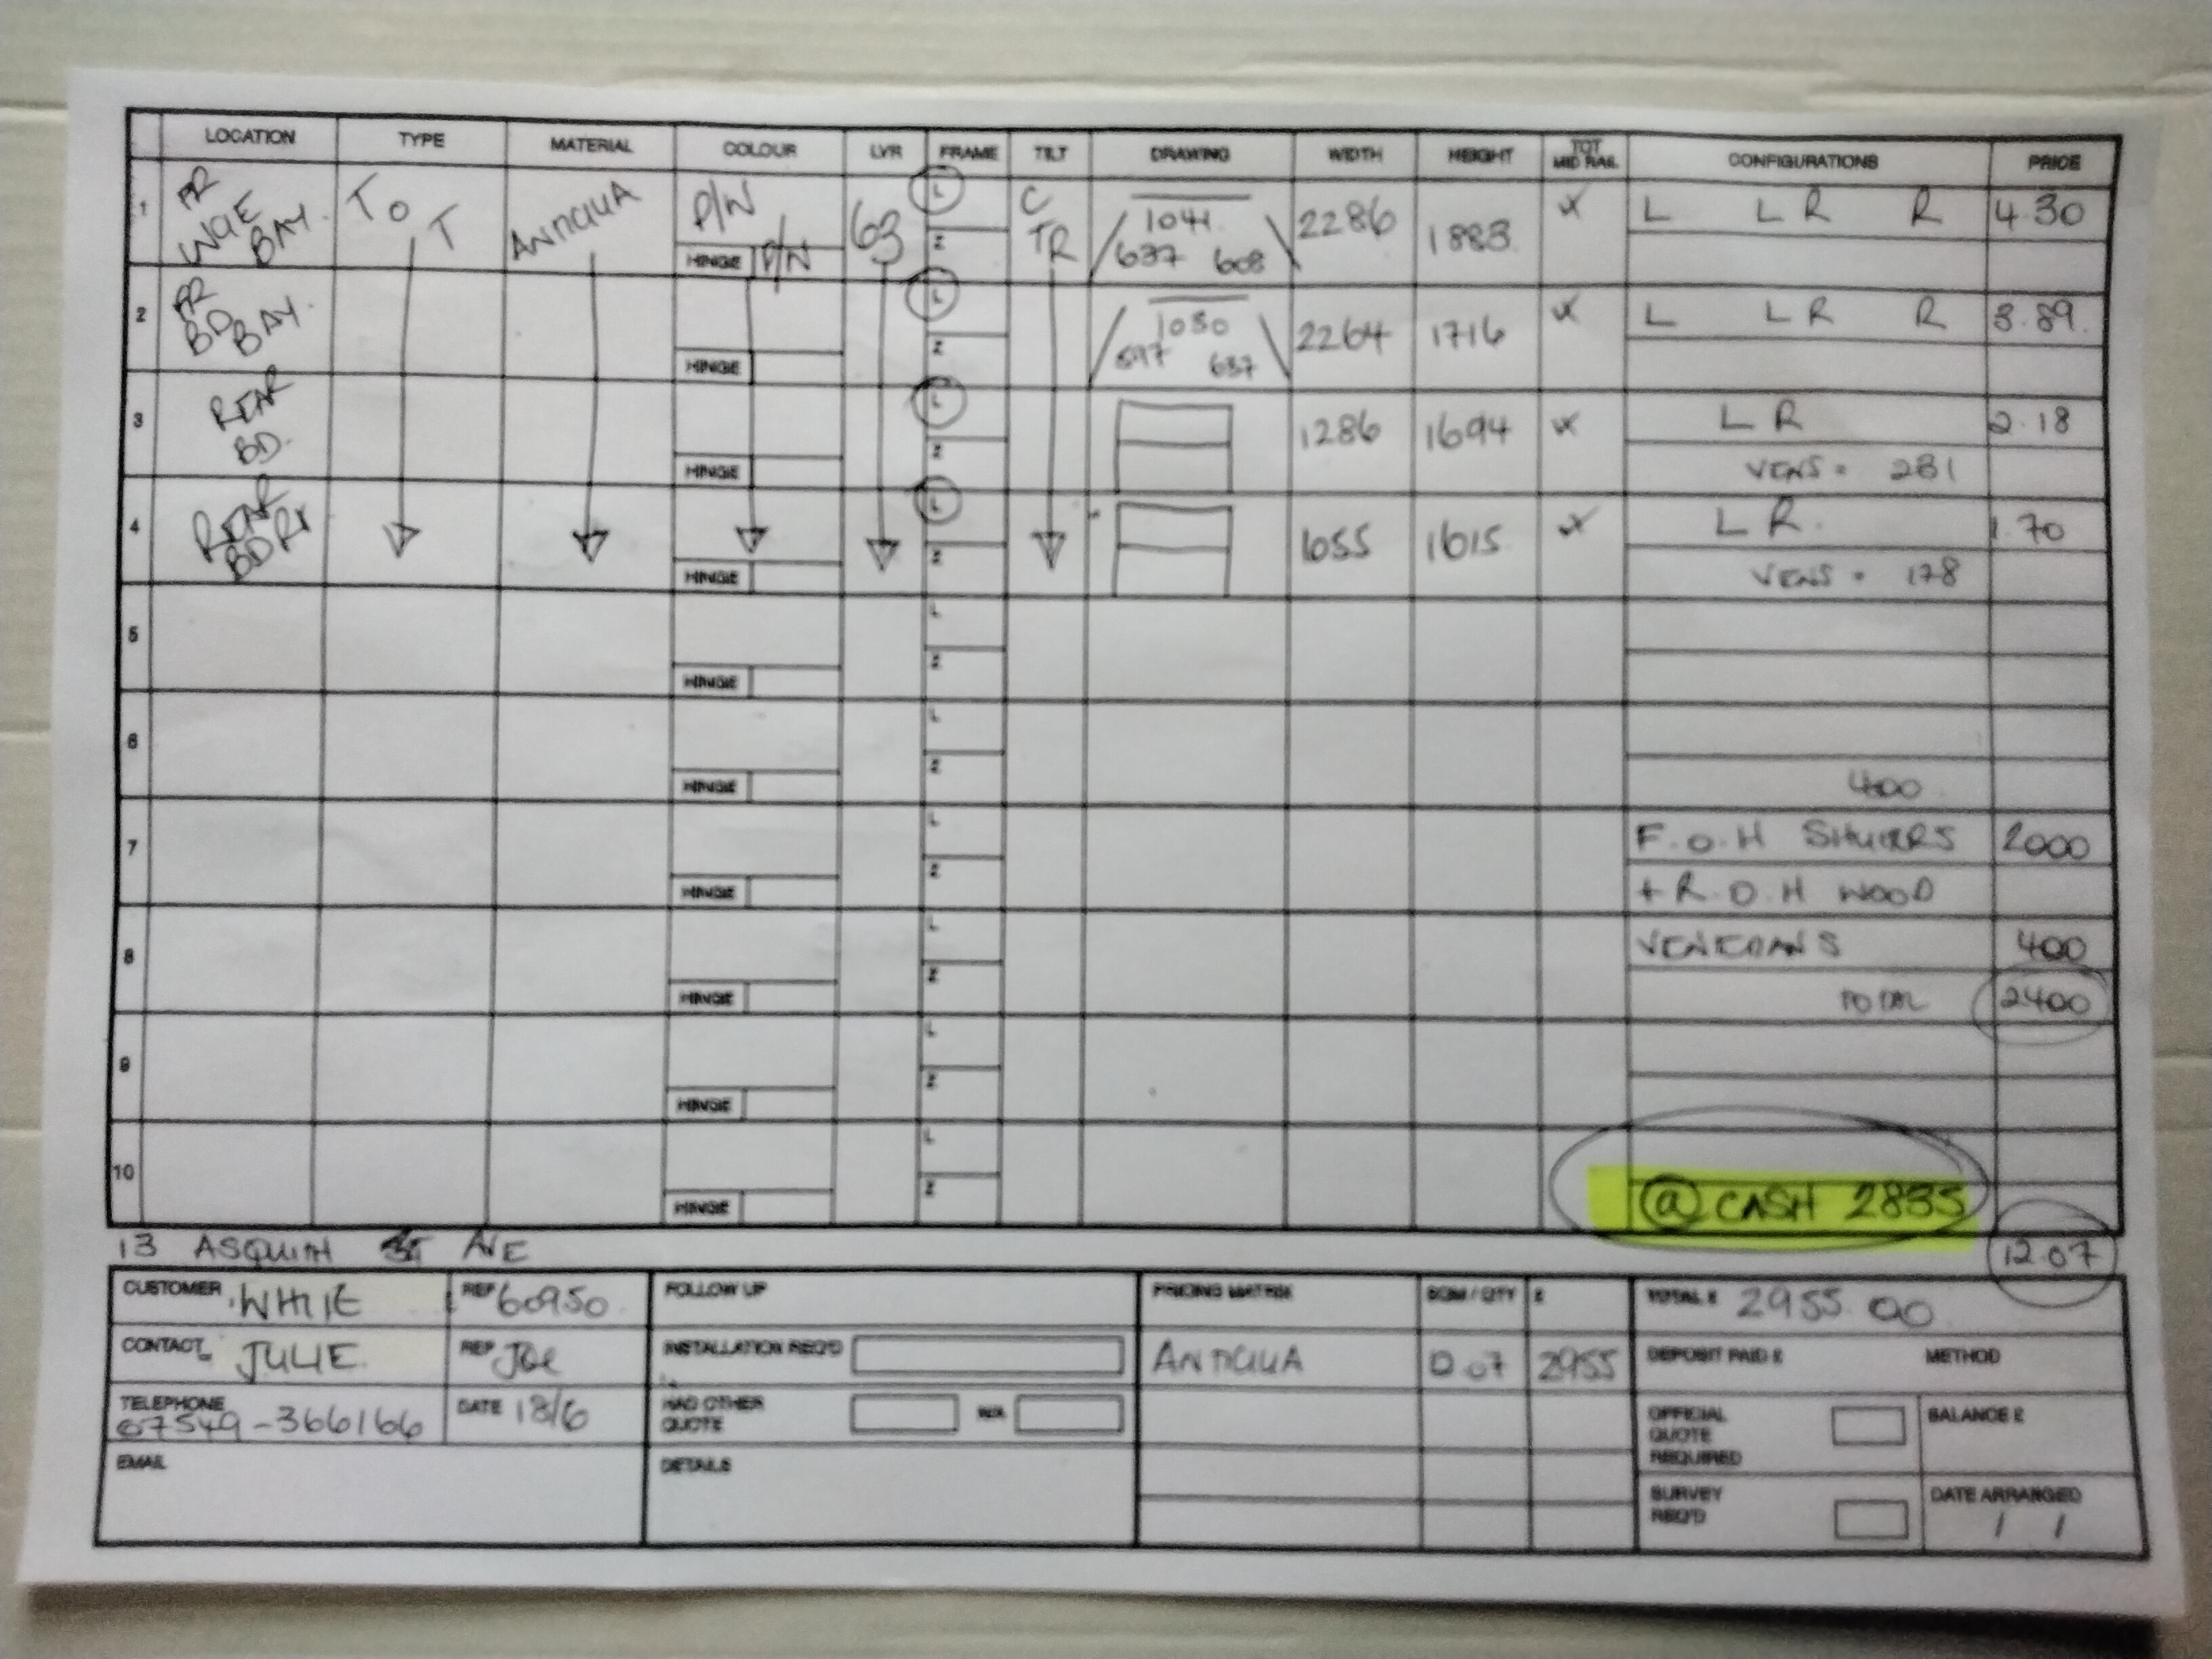 LOCATION TYPE MATERIAL COLOUR LVR FRAME TILT DRAWING WIDTH HEIGHT TOT MID RAIL CONFIGURATIONS PRICE
1 FR WGE BAY. T O T ANTIGUA P/W HINGE P/W 63 L Z C TR 1041 637 608 2286 1883 L LR R 4.30
2 FR BD BAY. HINGE L Z 1030 597 637 2264 1716 L LR R 3.89
3 REAR BD. HINGE L Z 1286 1694 LR 2.18
VENS = 231
4 REAR BD RX HINGE L Z 1055 1615 LR. 1.70
VENS = 178
5 HINGE L Z
6 HINGE L Z
400
7 HINGE L Z F.O.H SHUTTERS 2000
+ R.O.H WOOD
8 HINGE L Z VENETIANS 400
TOTAL 2400
9 HINGE L Z
10 HINGE L Z
@ CASH 2835
13 ASQUITH AVE 12.07
CUSTOMER WHITE REF 60950 FOLLOW UP PRICING MATRIX SQM / QTY £ TOTAL £ 2955.00
CONTACT JULIE REP JOE INSTALLATION REQ'D ANTIGUA 12.07 2955 DEPOSIT PAID £ METHOD
TELEPHONE 07549-366166 DATE 18/6 HAD OTHER QUOTE N/A OFFICIAL QUOTE REQUIRED BALANCE £
EMAIL DETAILS SURVEY REQ'D DATE ARRANGED / /